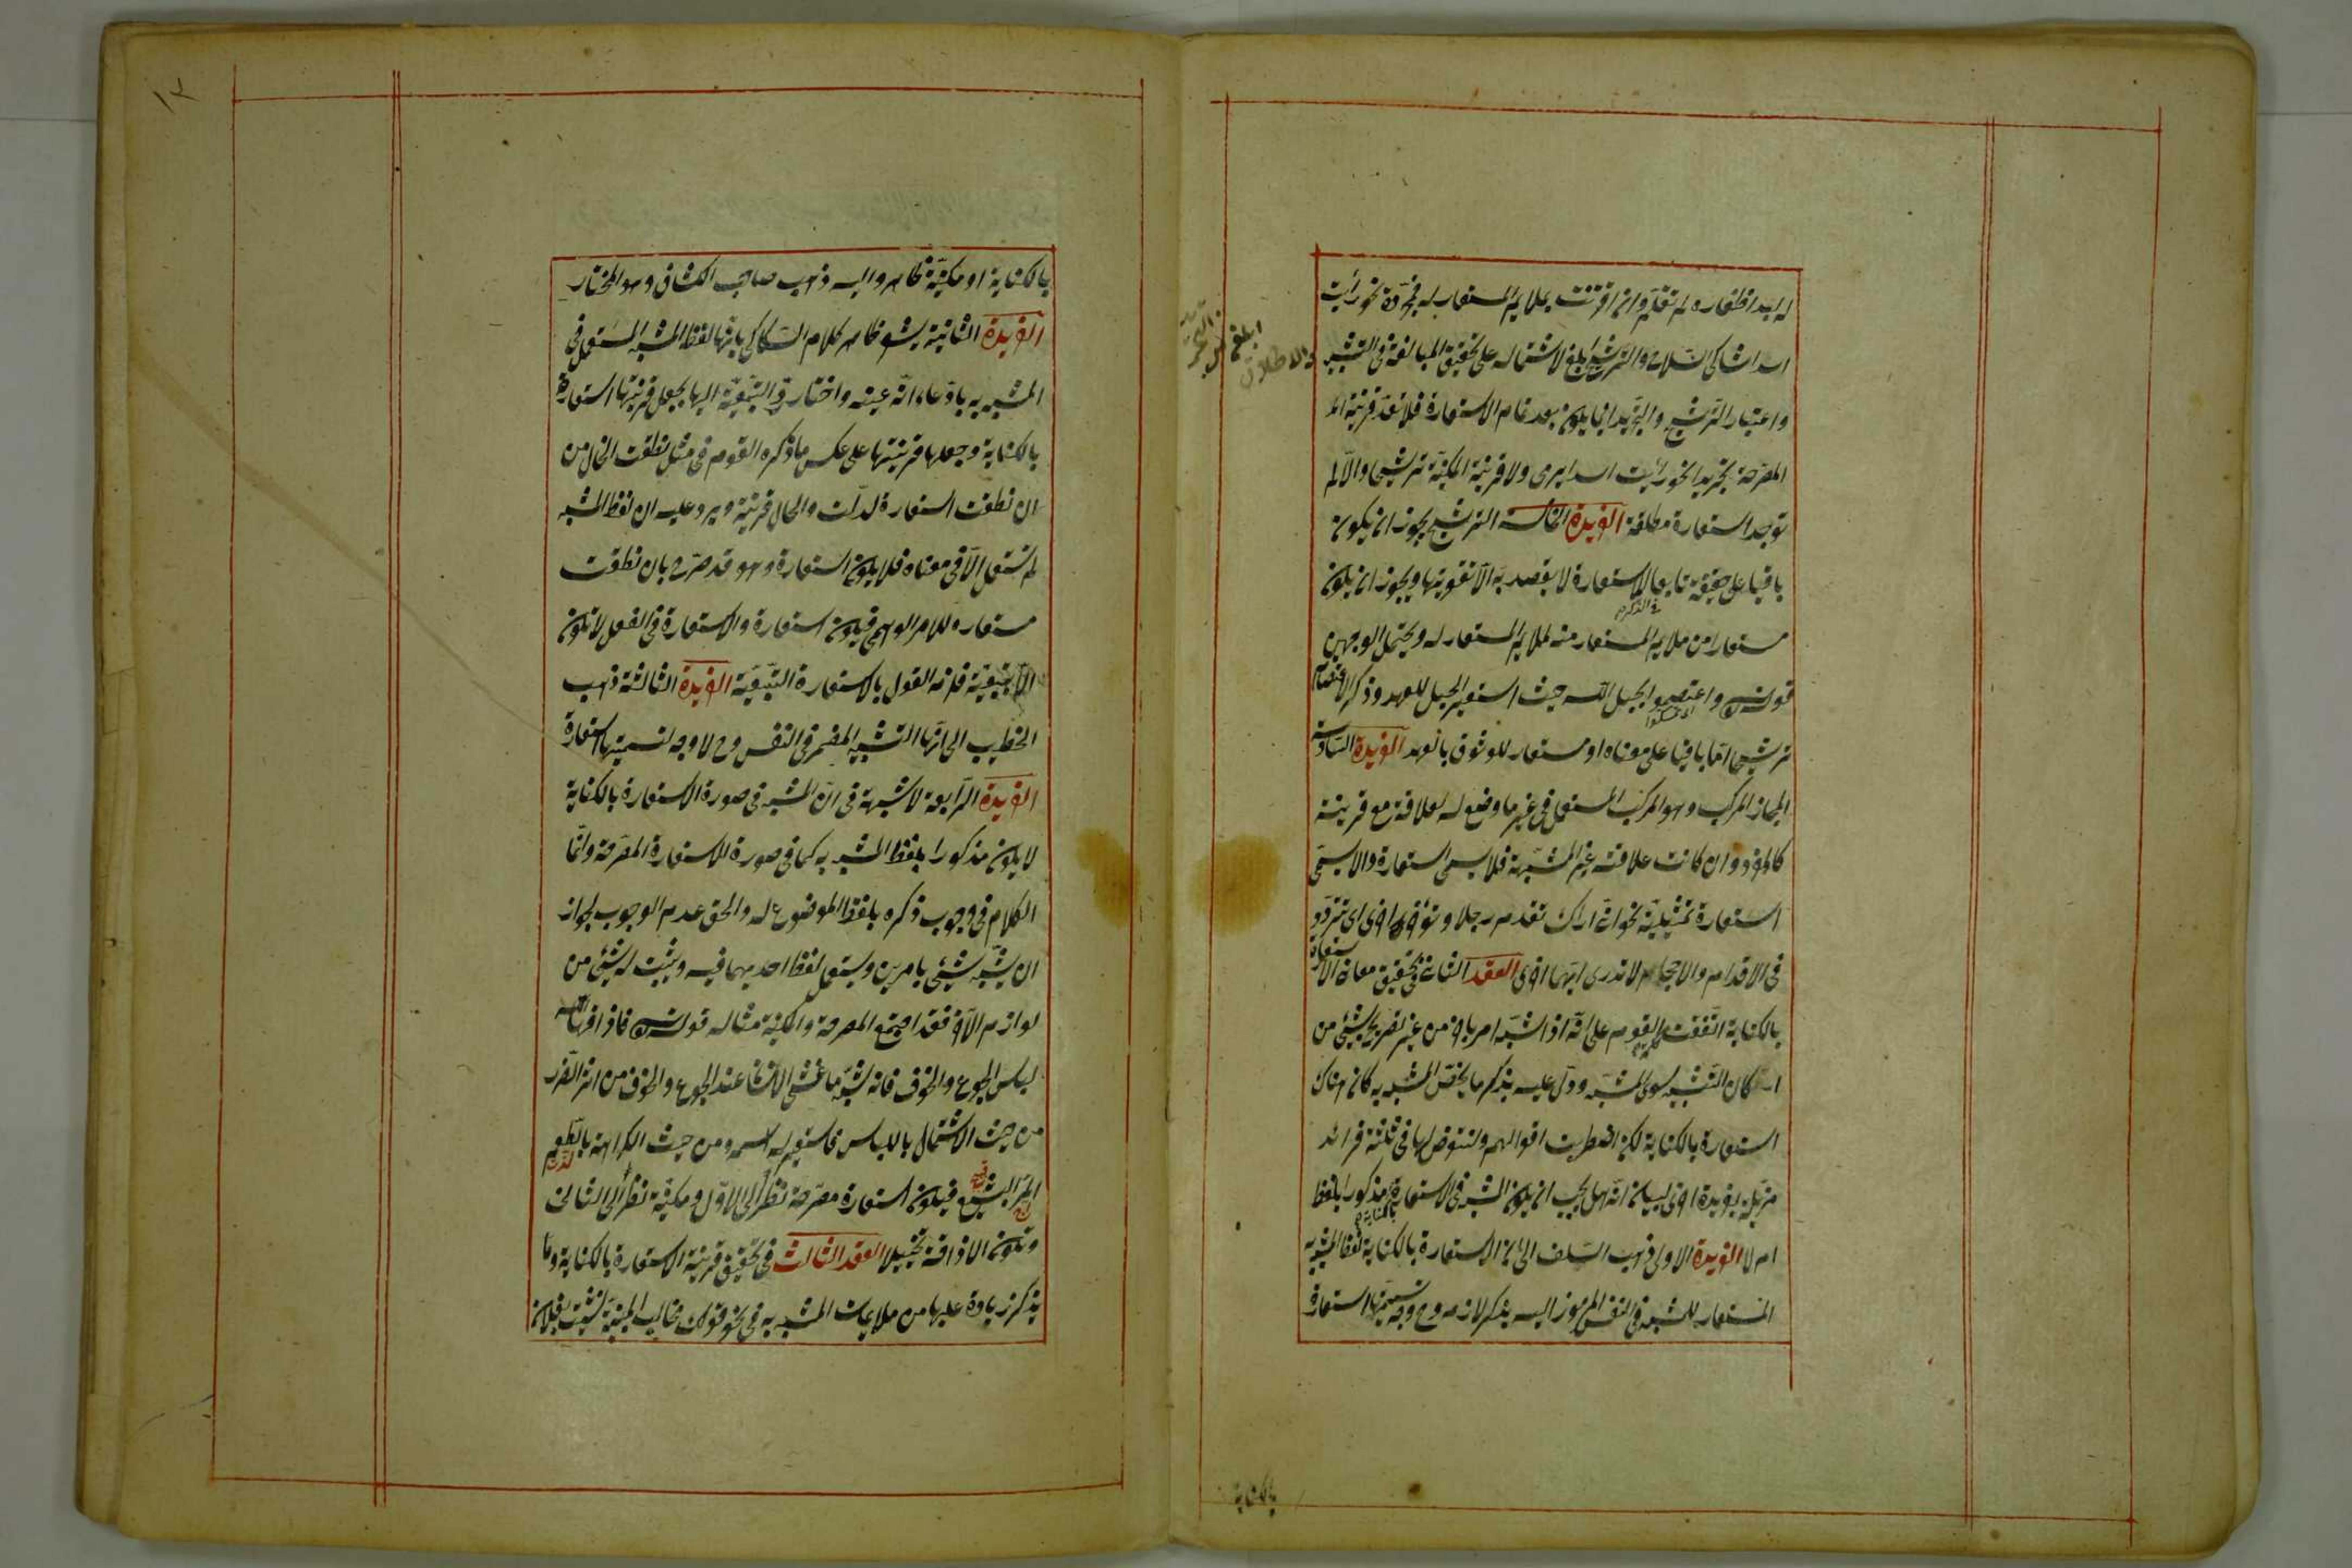 له لبد اظفاره لم تقلم وان اقترنت بملايم المستعار له فمجردة نحو رأيت
اسدا شاكى السلاح والترشيح ابلغ لاشتماله على تحقيق المبالغة فى التشبيه
واعتبار الترشيح والتجريد انما يكون بعد تمام الاستعارة فلا تعد قرينة
المصرحة تجريدا نحو رأيت اسدا يرمى ولا قرينة المكنية ترشيحا والا لم
توجد استعارة مطلقة الفريدة الخامسة الترشيح يجوز ان يكون
باقيا على حقيقته تابعا للاستعارة لا يقصد به الا تقويتها ويجوز ان يكون
فى الذكر
مستعارا من ملايم المستعار منه لملايم المستعار له ويحتمل الوجهين
قوله واعتصموا بحبل الله حيث استعير الحبل للعهد وذكر الاعتصام
ترشيحا اما باقيا على معناه او مستعار للوثوق بالعهد الفريدة السادسة
المجاز المركب وهو المركب المستعمل فى غير ما وضع له لعلاقة مع قرينة
كالمفرد وان كانت علاقته غير المشابهة فلا يسمى استعارة والا يسمى
استعارة تمثيلية نحو انى اراك تقدم رجلا وتؤخر اخرى اى تتردد
فى الاقدام والاحجام لا تدرى ايهما احرى العقد الثانى فى تحقيق معانى الاستعارة
بالكناية اتفقت كلمة القوم على انه اذا شبه امر باخر من غير تصريح بشئ من
اركان التشبيه سوى المشبه ودل عليه بذكر ما يخص المشبه به كان هناك
استعارة بالكناية لكن اضطربت اقوالهم ولنتعرض لها فى ثلثة فرائد
مذيلة بفريدة اخرى لبيان انه هل يجب ان يكون المشبه فى الاستعارة بالكناية مذكورا بلفظه
ام لا الفريدة الاولى ذهب السلف الى ان الاستعارة بالكناية لفظ المشبه به
المستعار للمشبه فى النفس المرموز اليه بذكر لازمه وح وجه تسميتها استعارة
ابلغ من التجريد
والاطلاق
بالكناية
١٢
بالكناية او مكنية ظاهر واليه ذهب صاحب الكشاف وهو المختار
الفريدة الثانية يشعر ظاهر كلام السكاكى بانها لفظ المشبه المستعمل فى
المشبه به بادعاء انه عينه واختار رد التبعية اليها بجعل قرينتها استعارة
بالكناية وجعلها قرينتها على عكس ما ذكره القوم فى مثل نطقت الحال من
ان نطقت استعارة لدلت والحال قرينة ويرد عليه ان لفظ المشبه
لم تستعمل الا فى معناه فلا يكون استعارة وهو قد صرح بان نطقت
مستعارة للامر الوهمى فيكون استعارة والاستعارة فى الفعل لا تكون
الا تبعية فلزمه القول بالاستعارة التبعية الفريدة الثالثة ذهب
الخطيب الى انها التشبيه المضمر فى النفس وح لا وجه لتسميتها استعارة
الفريدة الرابعة لا شبهة فى ان المشبه فى صورة الاستعارة بالكناية
لا يكون مذكورا بلفظ المشبه به كما فى صورة الاستعارة المصرحة وانما
الكلام فى وجوب ذكره بلفظ الموضوع له والحق عدم الوجوب لجواز
ان يشبه شيئ بامرين ويستعمل لفظ احديهما فيه ويثبت له شيئ من
لوازم الآخر فقد اجتمع المصرحة والمكنية مثاله قوله فاذاقها الله
لباس الجوع والخوف فانه شبه ما غشى الانسان عند الجوع والخوف من اثر الضرر
من حيث الاشتمال باللباس فاستعير له اسمه ومن حيث الكراهة بالطعم
المر البشع فيكون استعارة مصرحة نظرا الى الاول ومكنية نظرا الى الثانى
وتكون الاذاقة تخييلا العقد الثالث فى تحقيق قرينة الاستعارة بالكناية وما
يذكر زيادة عليها من ملايمات المشبه به فى نحو قولك مخالب المنية نشبت بفلان